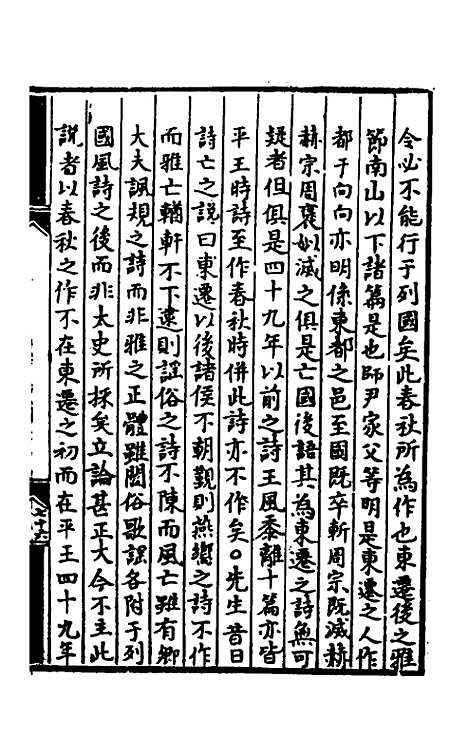 令必不能行于列國矣此春秋所為作也東遷後之雅
節南山以下諸篇是也師尹家父等明是東遷之人作
都于向向亦明係東都之邑至國既卒斬周宗既滅赫
赫宗周褒姒滅之俱是亡國後語其為東遷之詩無可
疑者但俱是四十九年以前之詩王風黍離十篇亦皆
平王時詩至作春秋時併此詩亦不作矣○先生昔日
詩亡之說曰東遷以後諸侯不朝覲則燕饗之詩不作
而雅亡輶軒不下逮則謡俗之詩不陳而風亡雖有卿
大夫諷規之詩而非雅之正體雖閭俗歌謡各附于列
國風詩之後而非太史所採矣立論甚正大今不主此
說者以春秋之作不在東遷之初而在平王四十九年
六十六